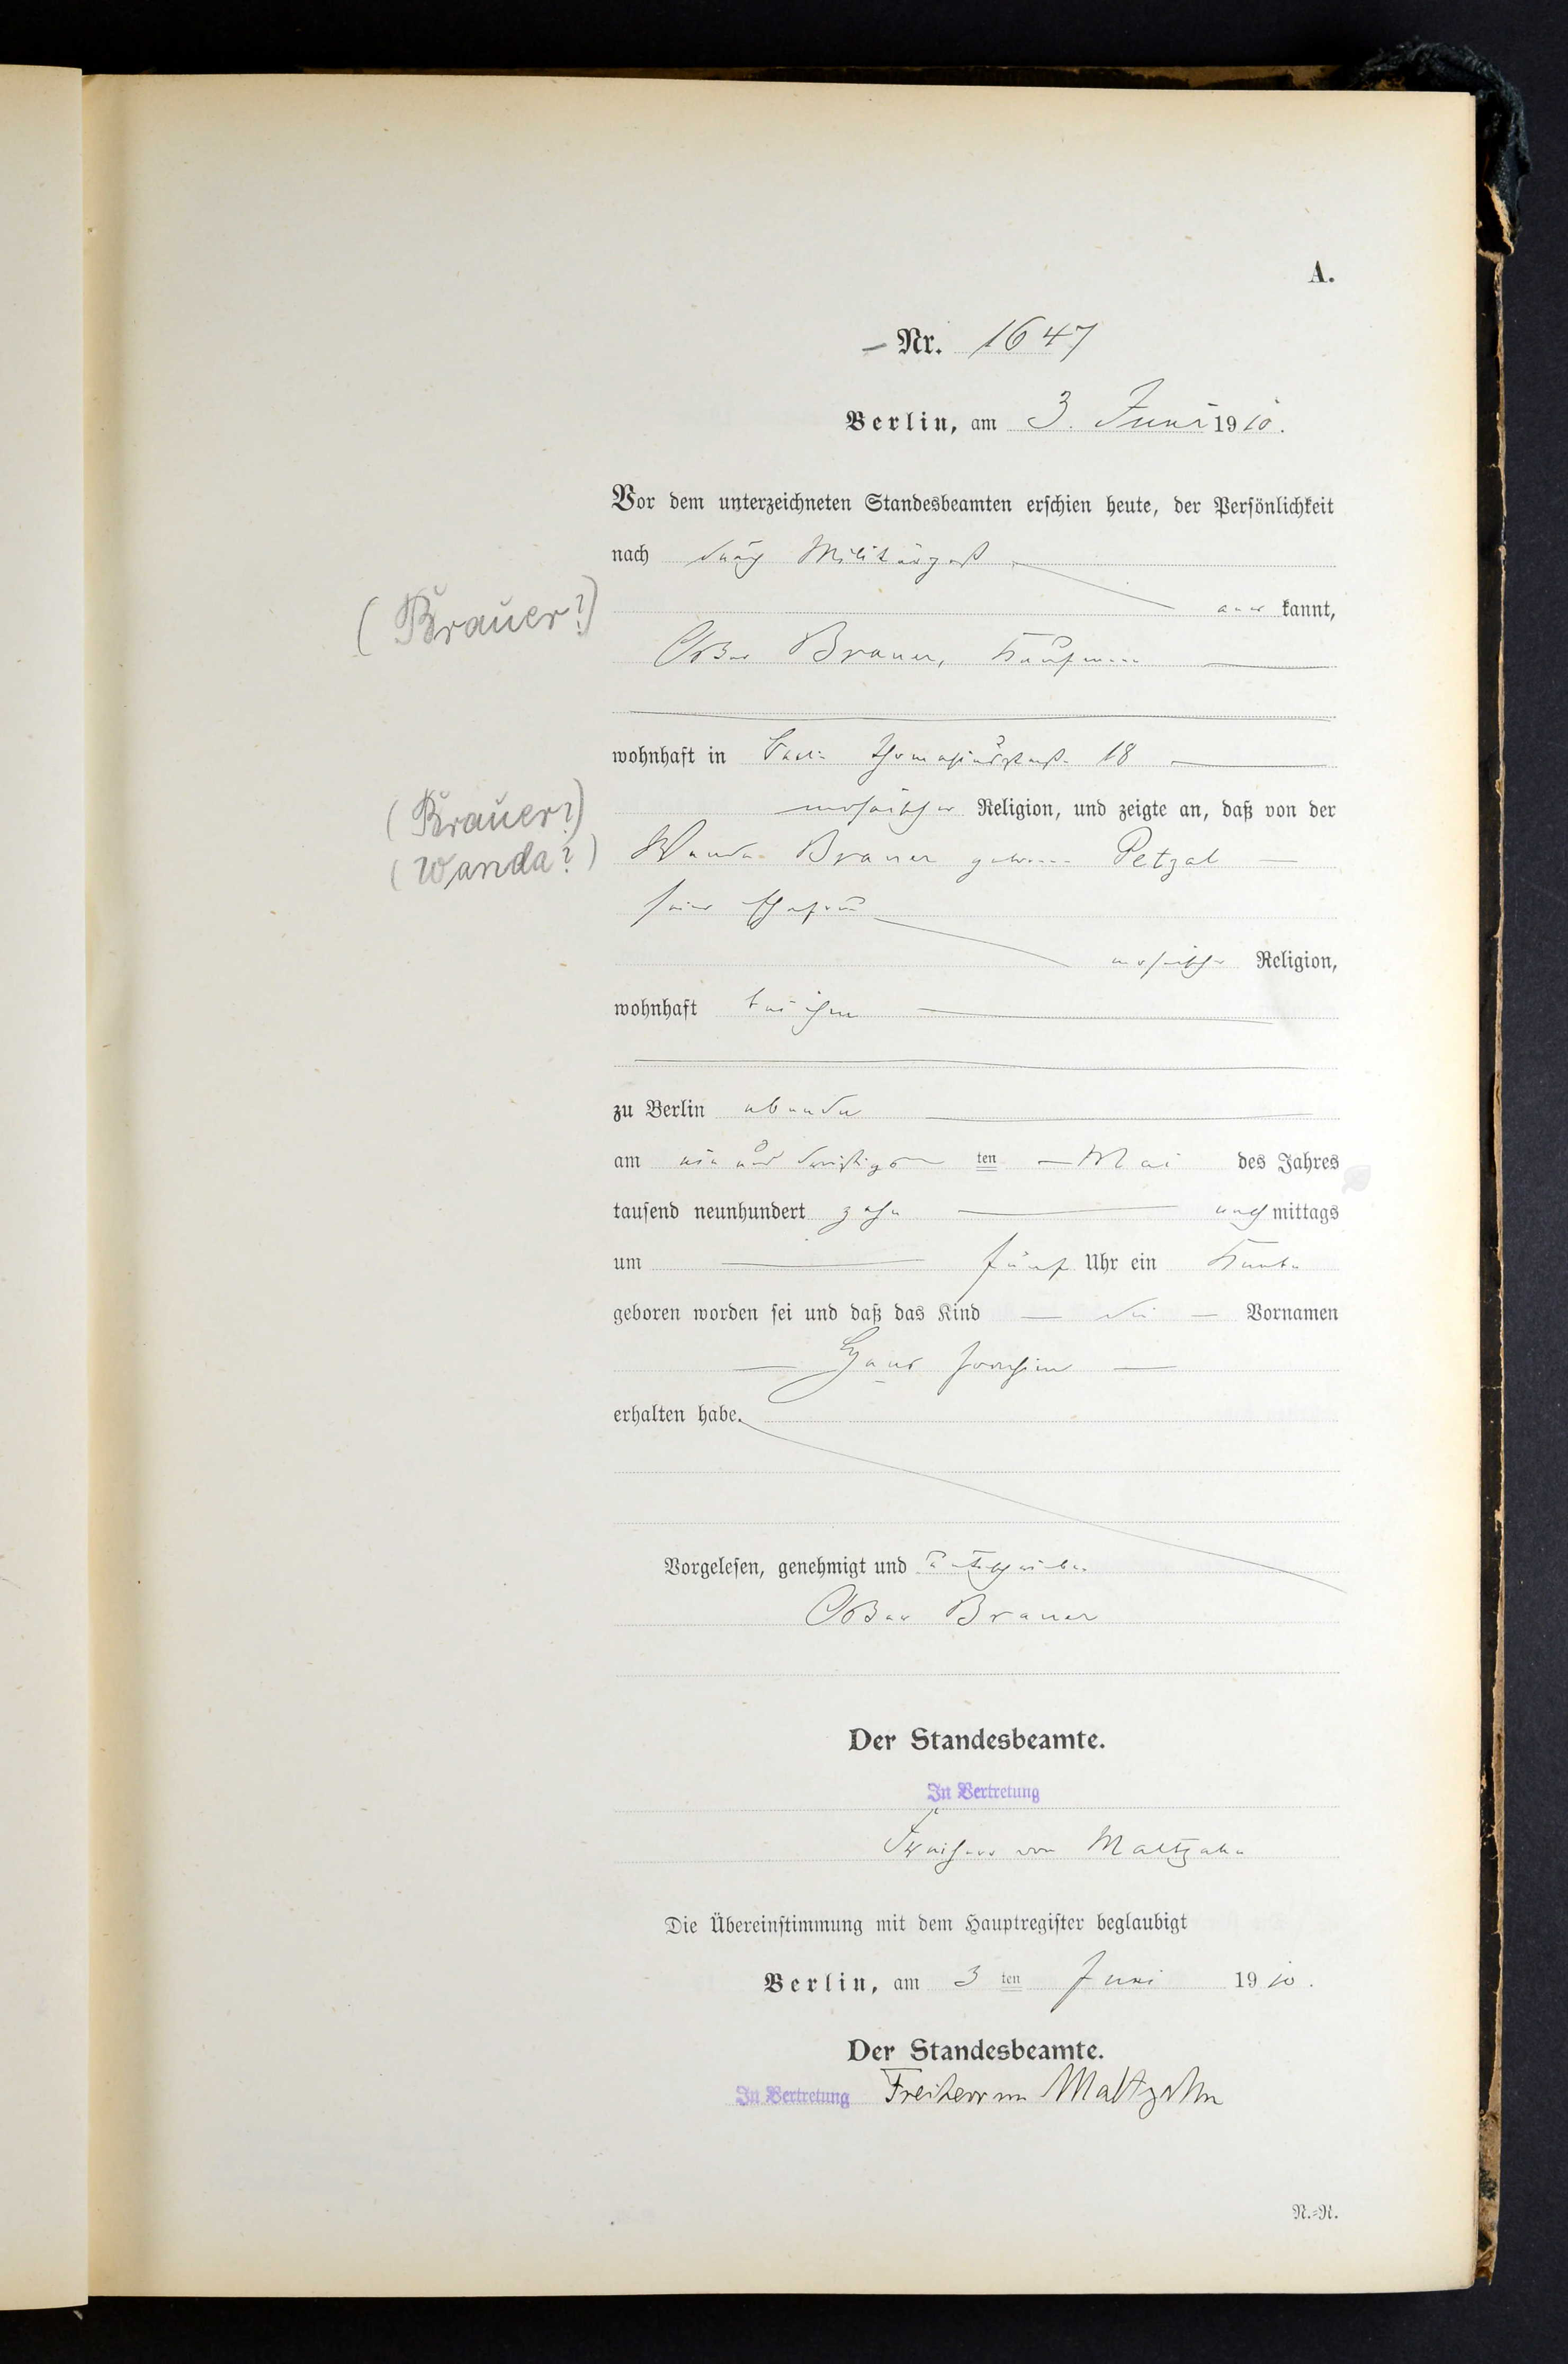 A.
Nr. 1647
Berlin, am 3. Juni 1910.
Vor dem unterzeichneten Standesbeamten erschien heute, der Persönlichkeit
nach durch Militärpaß
aner kannt,
(Brauer?)
Oskar Brauer, Kaufmann
wohnhaft in Berlin Thomasiusstraße 18
mosaischer Religion, und zeigte an, daß von der
(Brauer?)
(Wanda?)
Wanda Brauer geborenen Petzal
seiner Ehefrau
mosaischer Religion,
wohnhaft bei ihm
zu Berlin ebenda
am ein und dreißigsten ten Mai des Jahres
tausend neunhundert zehn nachmittags
um fünf Uhr ein Knabe
geboren worden sei und daß das Kind die Vornamen
Hans Joachim
erhalten habe.
Vorgelesen, genehmigt und unterschrieben
Oskar Brauer
Der Standesbeamte.
In Vertretung
Freiherr von Maltzahn
Die Übereinstimmung mit dem Hauptregister beglaubigt
Berlin, am 3 ten Juni 1910.
Der Standesbeamte.
In Vertretung Freiherr von Maltzahn
N.=R.